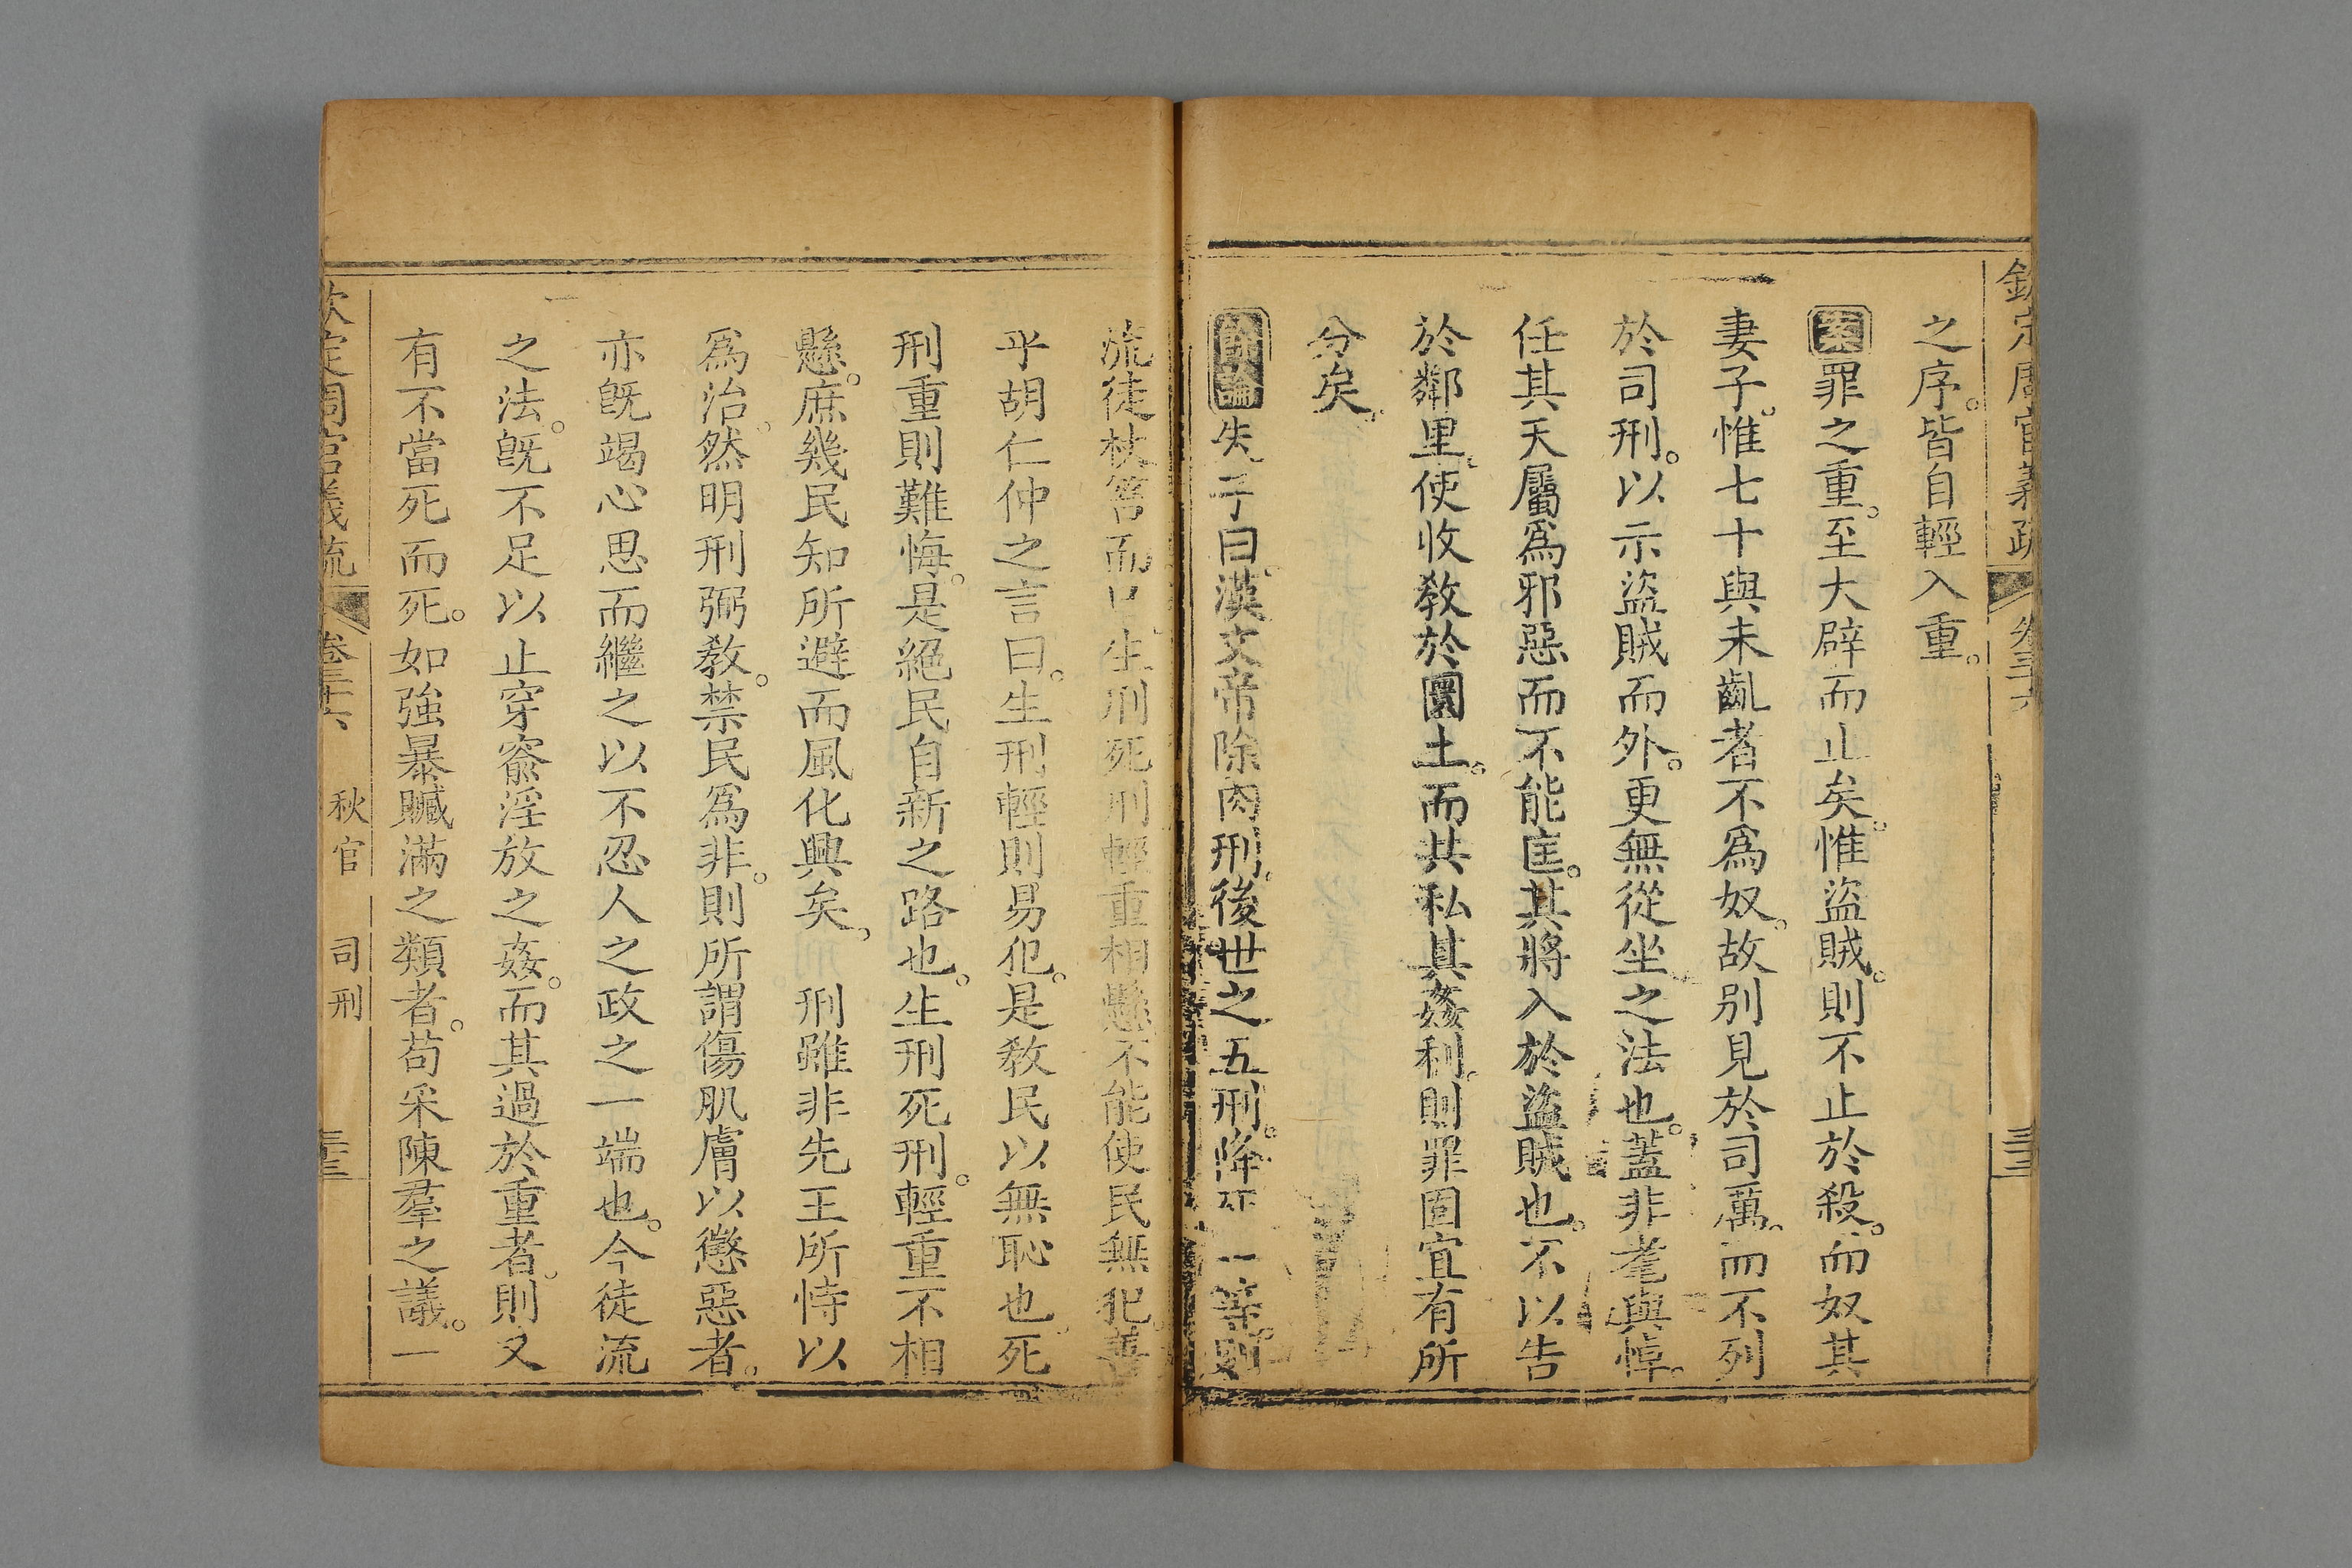 欽定周官義疏 卷三十六
之序。皆自輕入重。
案罪之重。至大辟而止矣。惟盜賊。則不止於殺。而奴其
妻子。惟七十與未齓者不爲奴。故别見於司厲。而不列
於司刑。以示盜賊而外。更無從坐之法也。蓋非耄與悼。
任其天屬爲邪惡而不能匡。其將入於盜賊也。不以告
於鄰里。使收敎於圜土。而共私其姦利。則罪固宜有所
分矣。
論朱子曰。漢文帝除肉刑。後世之五刑。降死一等。則
流徒杖笞而已。生刑死刑輕重相懸。不能使民無犯。善
乎胡仁仲之言曰。生刑輕則易犯。是敎民以無恥也。死
刑重則難悔。是絕民自新之路也。生刑死刑。輕重不相
懸。庶幾民知所避而風化興矣。 刑雖非先王所恃以
爲治。然明刑弼敎。禁民爲非。則所謂傷肌膚以懲惡者。
亦旣竭心思而繼之以不忍人之政之一端也。今徒流
之法。旣不足以止穿窬淫放之姦。而其過於重者。則又
有不當死而死。如強暴贓滿之類者。苟采陳羣之議。一
欽定周官義疏 卷三十六 秋官 司刑 三三